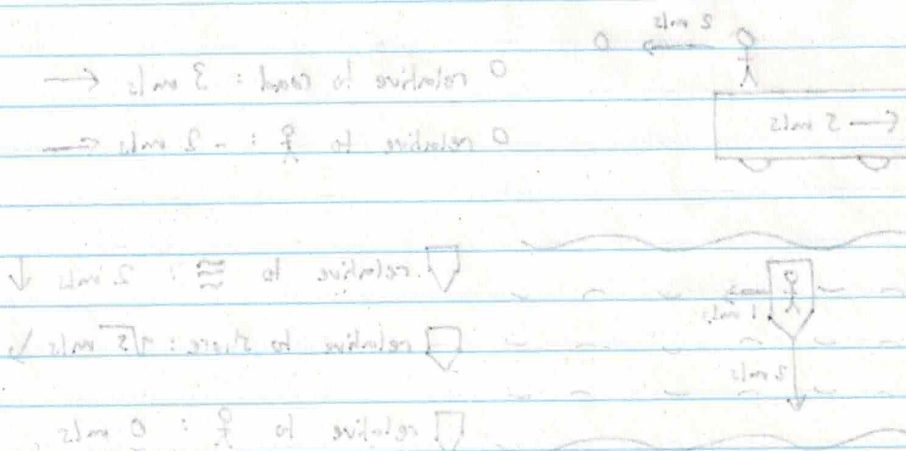 2 m/s
5 m/s
O relative to road : 3 m/s
O relative to : - 2 m/s
1 m/s
2 m/s
relative to : 2 m/s
relative to shore : √5 m/s
relative to : 0 m/s